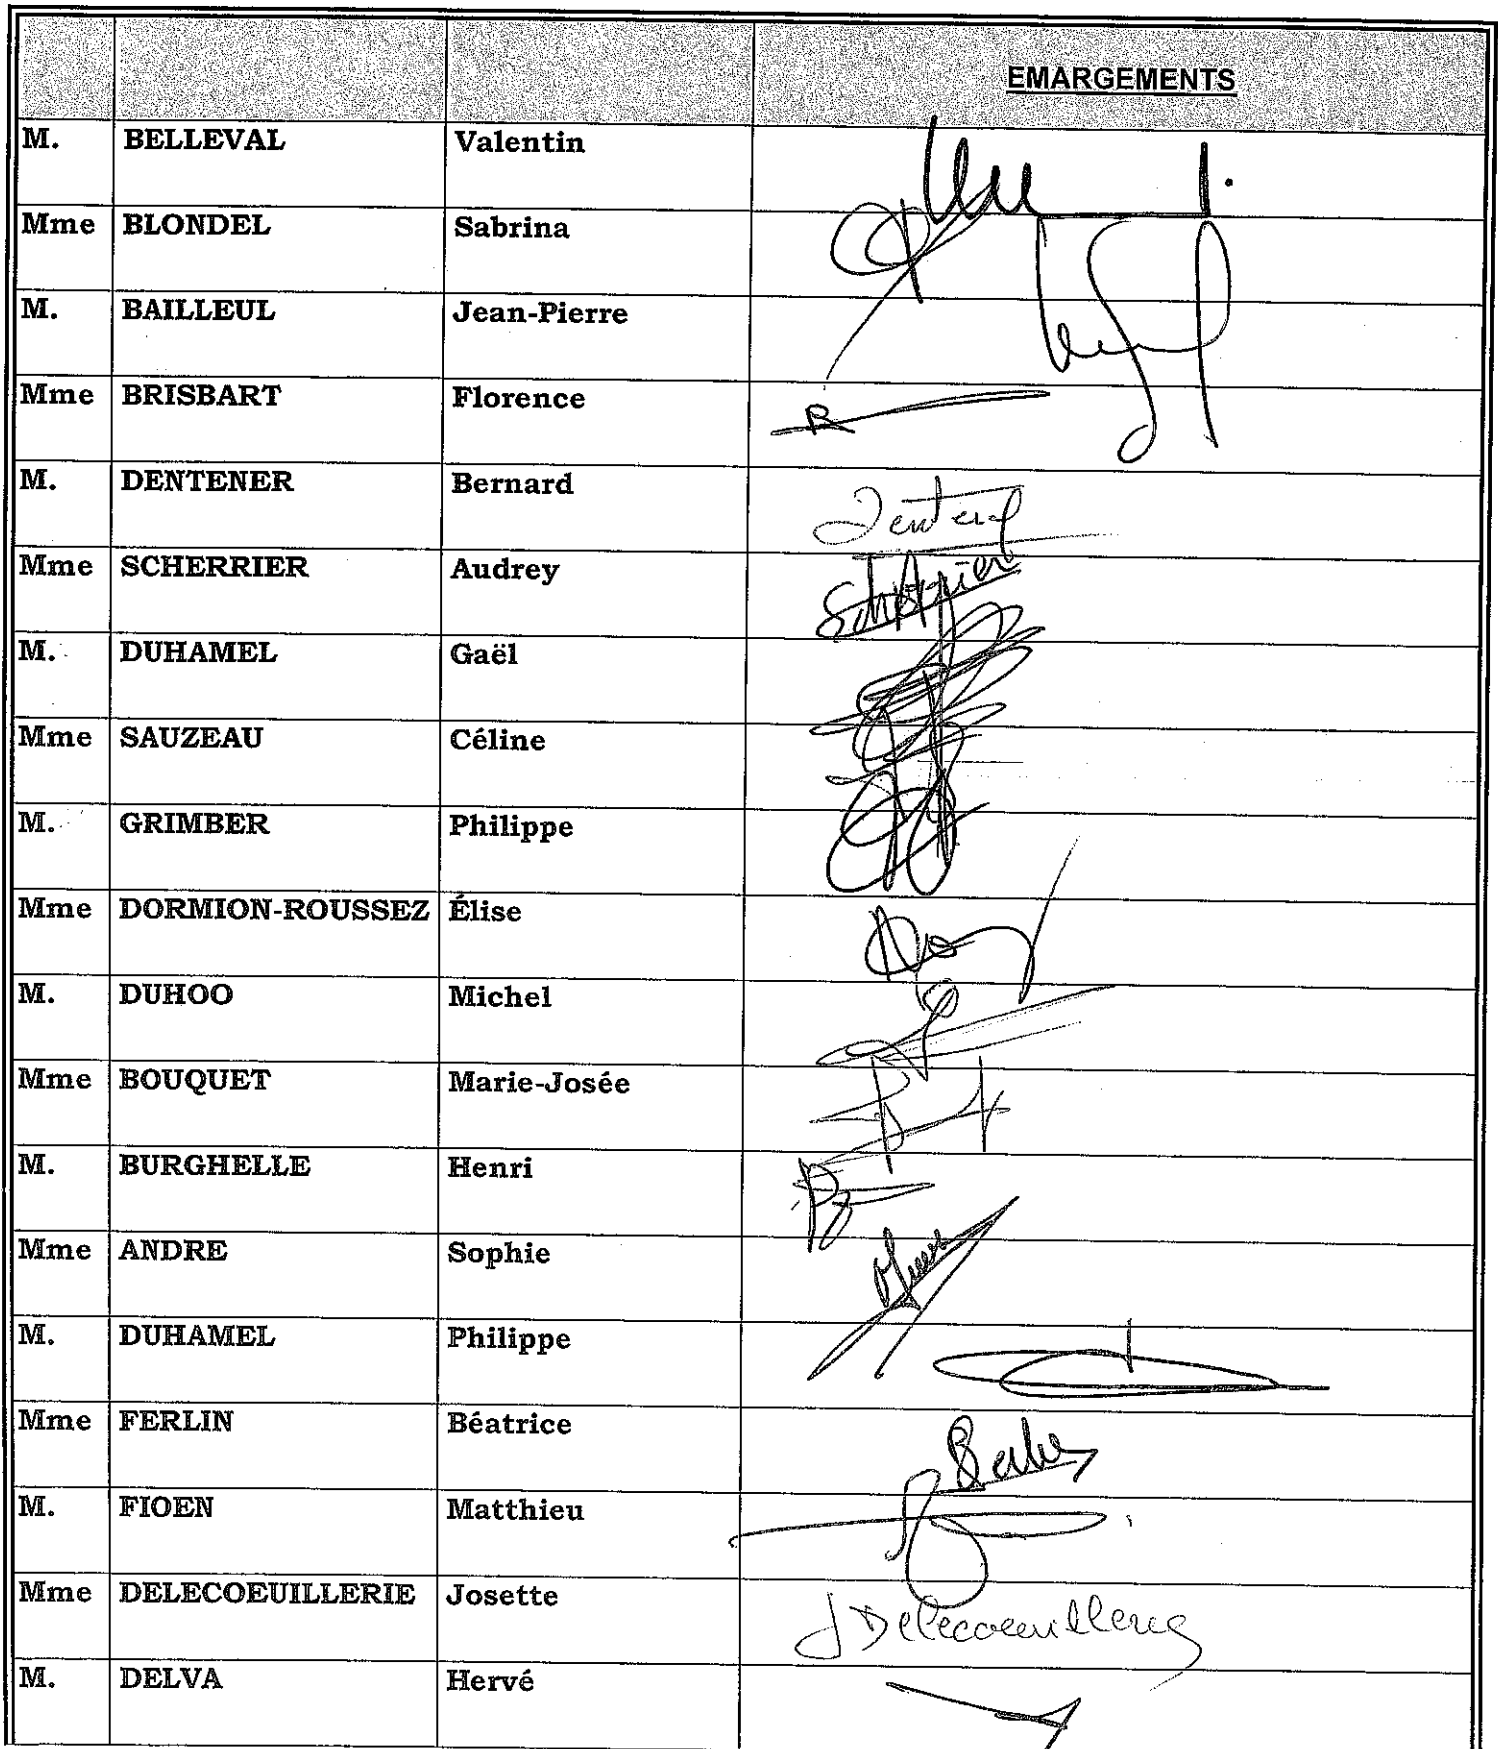 EMARGEMENTS
M. BELLEVAL Valentin
Mme BLONDEL Sabrina
M. BAILLEUL Jean-Pierre
Mme BRISBART Florence
M. DENTENER Bernard
Mme SCHERRIER Audrey
M. DUHAMEL Gaël
Mme SAUZEAU Céline
M. GRIMBER Philippe
Mme DORMION-ROUSSEZ Élise
M. DUHOO Michel
Mme BOUQUET Marie-Josée
M. BURGHELLE Henri
Mme ANDRE Sophie
M. DUHAMEL Philippe
Mme FERLIN Béatrice
M. FIOEN Matthieu
Mme DELECOEUILLERIE Josette J Delecoeuillerie
M. DELVA Hervé